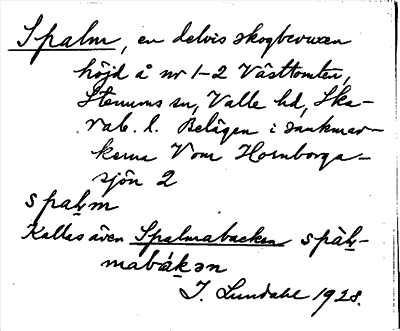 Spalm, en delvis skogbevuxen
höjd å nr 1-2 Västtomten,
Stenums sn, Valle hd, Ska-
rab. l. Belägen i sankmar-
kerna V om Hornborga-
sjön 2
spaḷm
Kallas även Spalmabacken späḷ-
mabákən
I. Lundahl 1928.